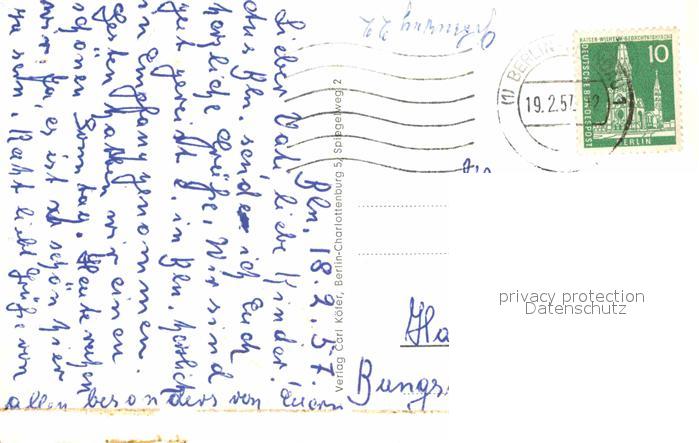 Bln. 18.2.57.
Lieber Vati, liebe Kinder!
Aus Bln. sende ich Euch
herzliche Grüße. Wir sind
gut gereist u. in Bln. herzlich
in Empfang genommen.
Gestern hatten wir einen
schönen Sonntag. Heute ruhen
wir. Ja, es ist schön hier
zu sein. Recht liebe Grüße von
allen besonders von Euern
Verlag Carl Köfer, Berlin-Charlottenburg 5, Spiegelweg 2
(1) BERLIN
19.2.57
KAISER-WILHELM-GEDÄCHTNISKIRCHE
DEUTSCHE BUNDESPOST
10
BERLIN
Ha
Bungs
privacy protection
Datenschutz